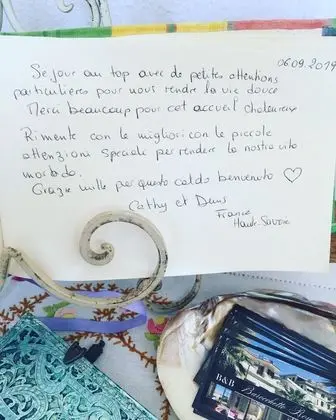 06.09.2019
Séjour au top avec de petites attentions
particulières pour nous rendre la vie douce
Merci beaucoup pour cet accueil chaleureux
Rimente con le migliori con le piccole
attenzioni speciale per rendere la nostra vita
morbido.
Grazie mille per questo caldo benvenuto ♡
Cathy et Denis
France
Haute-Savoie
B&B